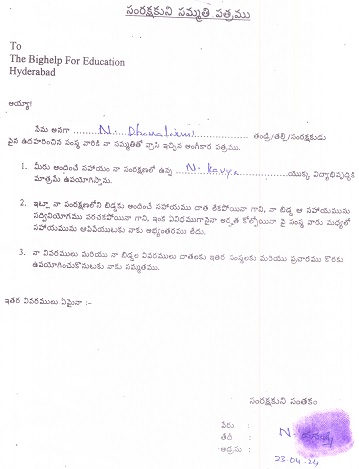 సంరక్షకుని సమ్మతి పత్రము
To
The Bighelp For Education
Hyderabad
అయ్యా!
మేము అనగా N. Dhanalaxmi తండ్రి/తల్లి/సంరక్షకుడు
పైన ఉదహరించిన సంస్థ వారికి నా సమ్మతితో వ్రాసి ఇచ్చిన అంగీకార పత్రము.
1. మీరు అందించే సహాయం నా సంరక్షణలో ఉన్న N. Kavya యొక్క విద్యాభివృద్ధికి
మాత్రమే ఉపయోగిస్తాను.
2. ఇట్లా నా సంరక్షణలోని బిడ్డకు అందించే సహాయము దాత లేకపోయినా గాని, నా బిడ్డ ఆ సహాయమును
సద్వినియోగము పరచకపోయినా గాని, ఇంక ఏవిధముగానైనా అర్హత కోల్పోయినా పై సంస్థ వారు మధ్యలో
సహాయమును ఆపివేయుటకు నాకు అభ్యంతరము లేదు.
3. నా వివరములు మరియు నా బిడ్డల వివరములు దాతలకు ఇతర సంస్థలకు మరియు ప్రచారము కొరకు
ఉపయోగించుకొనుటకు నాకు సమ్మతము.
ఇతర వివరములు ఏమైనా :-
సంరక్షకుని సంతకం
పేరు : N.
తేది :
అడ్రసు :
23-04-24